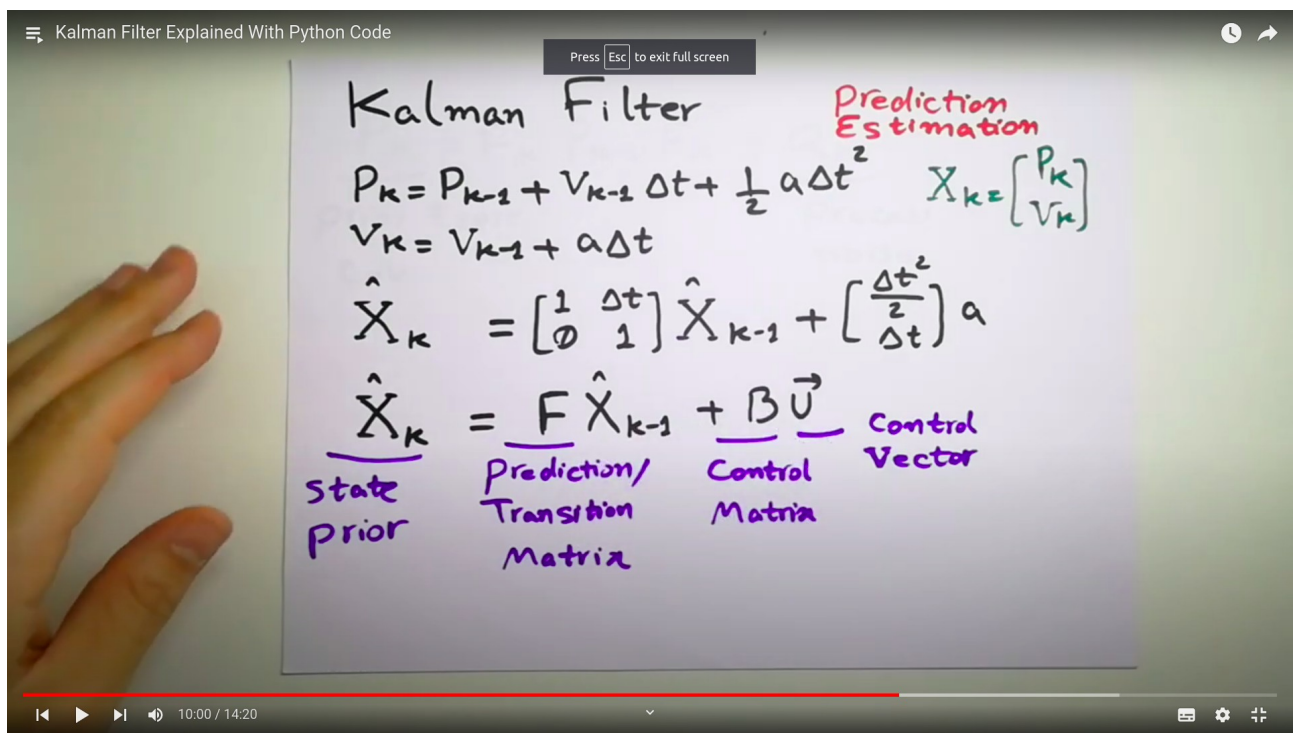 Kalman Filter Explained With Python Code
Press Esc to exit full screen
Kalman Filter
Prediction
Estimation
Pₖ = Pₖ₋₁ + Vₖ₋₁ Δt + 1/2 aΔt²
Xₖ = [Pₖ
Vₖ]
Vₖ = Vₖ₋₁ + aΔt
X̂ₖ = [1 Δt
0 1] X̂ₖ₋₁ + [Δt²/2
Δt] a
X̂ₖ = F X̂ₖ₋₁ + B U⃗
State
Prior
Prediction/
Transition
Matrix
Control
Matrix
Control
Vector
10:00 / 14:20